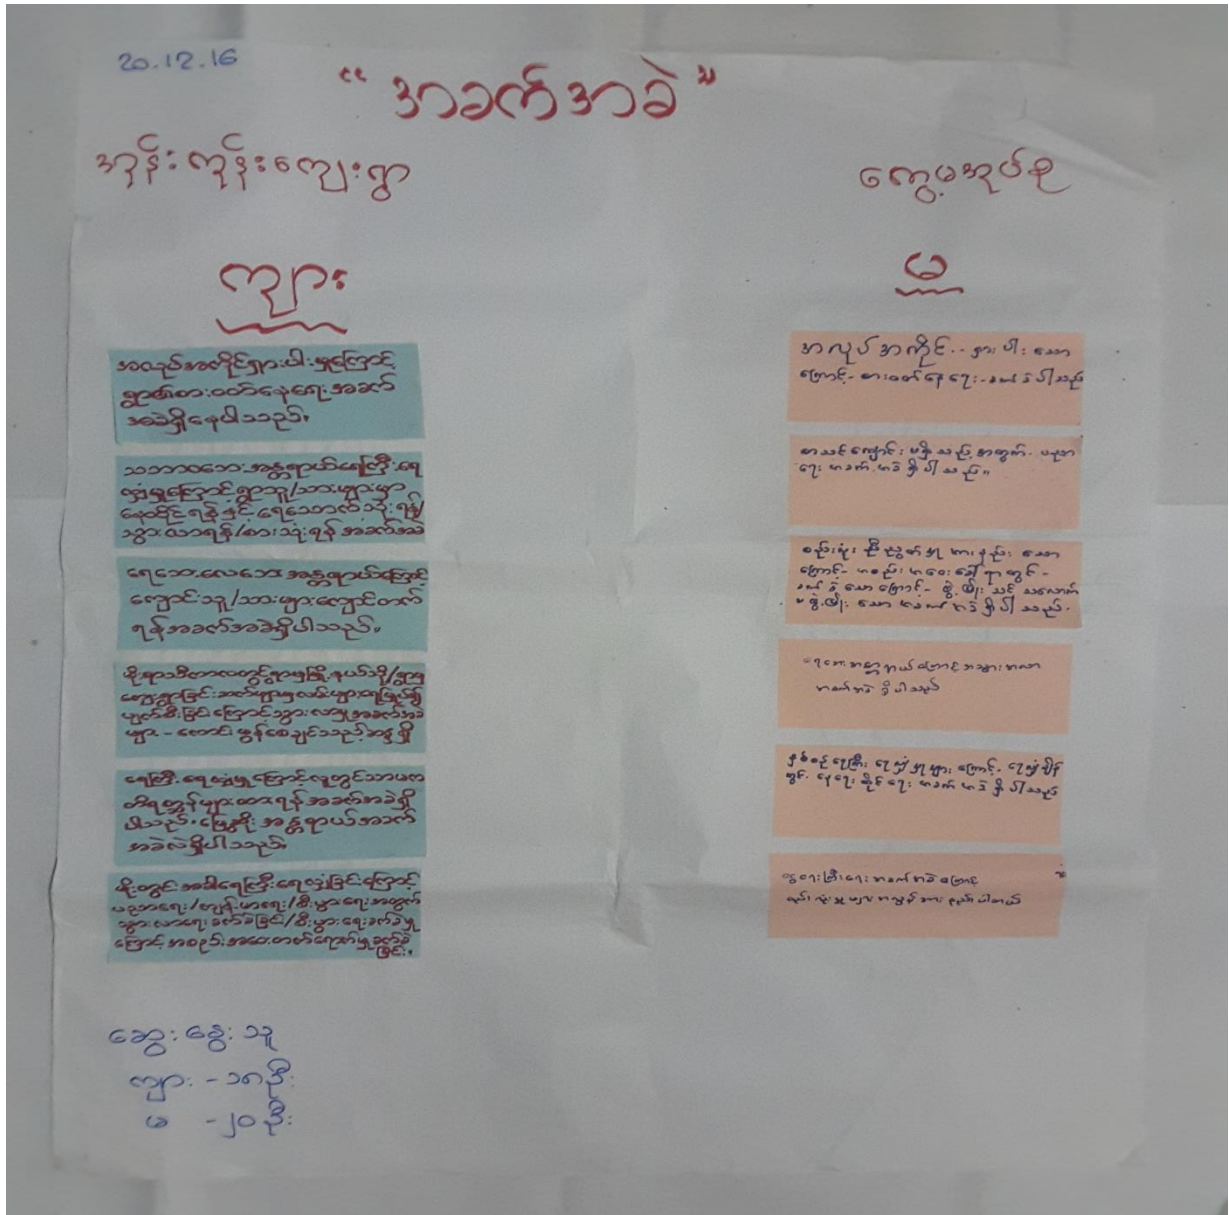 20.12.16
"အခက်အခဲ"
အုန်းကုန်းကျေးရွာ
ကွေ့မအုပ်စု
ကျား
မ
အလုပ်အကိုင်ရှားပါးမှုကြောင့်
ရွာ၏စားဝတ်နေရေး အခက်
အခဲရှိနေပါသည်။
သဘာဝဘေးအန္တရာယ်ရေကြီးရေ
လျှံမှုကြောင့်ရွာသူ/သားများမှာ
နေထိုင်ရန်နှင့် ရေသောက်သုံးရန်/
သွားလာရန်/စားသုံးရန် အခက်အခဲ
ရေဘေးလေဘေးအန္တရာယ်ကြောင့်
ကျောင်းသူ/သားများကျောင်းတက်
ရန်အခက်အခဲရှိပါသည်။
မိုးရာသီကာလတွင်ရွာမှမြို့နယ်သို့/ရွာမှ
ပျက်စီးခြင်းကြောင့်သွားလာမှုအခက်အခဲ
များ - ကောင်းမွန်စေချင်သည့်ဆန္ဒရှိ
ရေကြီးရေလျှံမှုကြောင့်လူတွင်သာမက
တိရစ္ဆာန်များထားရန်အခက်အခဲရှိ
ပါသည်။မြွေဆိုးအန္တရာယ်အခက်
အခဲလဲရှိပါသည်။
မိုးတွင်းအခါရေကြီးရေလျှံခြင်းကြောင့်
ပညာရေး/ကျန်းမာရေး/စီးပွားရေးအတွက်
သွားလာရေးခက်ခဲခြင်း/စီးပွားရေးခက်ခဲမှု
ကြောင့်အစည်းအဝေးတက်ရောက်မှုခက်ခဲ
ခြင်း။
အလုပ်အကိုင် - ရှားပါးသော
ကြောင့် - စားဝတ်နေရေး - ခက်ခဲပါသည်
စာသင်ကျောင်းမရှိသည့်အတွက် ပညာ
ရေးအခက်အခဲရှိပါသည်။
စည်းရုံးညီညွတ်မှုအားနည်းသော
ကြောင့် - အစည်းအဝေးခေါ်ရာတွင် -
ခက်ခဲသောကြောင့် - ဖွံ့ဖြိုးသင့်သလောက်
မဖွံ့ဖြိုးသောအခက်အခဲရှိပါသည်။
ရေဘေးအန္တရာယ်ကြောင့်အသွားအလာ
အခက်အခဲရှိပါသည်
နှစ်စဉ်ရေကြီးရေလျှံမှုများကြောင့် ရေလျှံချိန်
တွင် နေရေးထိုင်ရေးအခက်အခဲရှိပါသည်
ဆွေးနွေးသူ
ကျား - ၁၈ဦး
မ - ၂၀ဦး